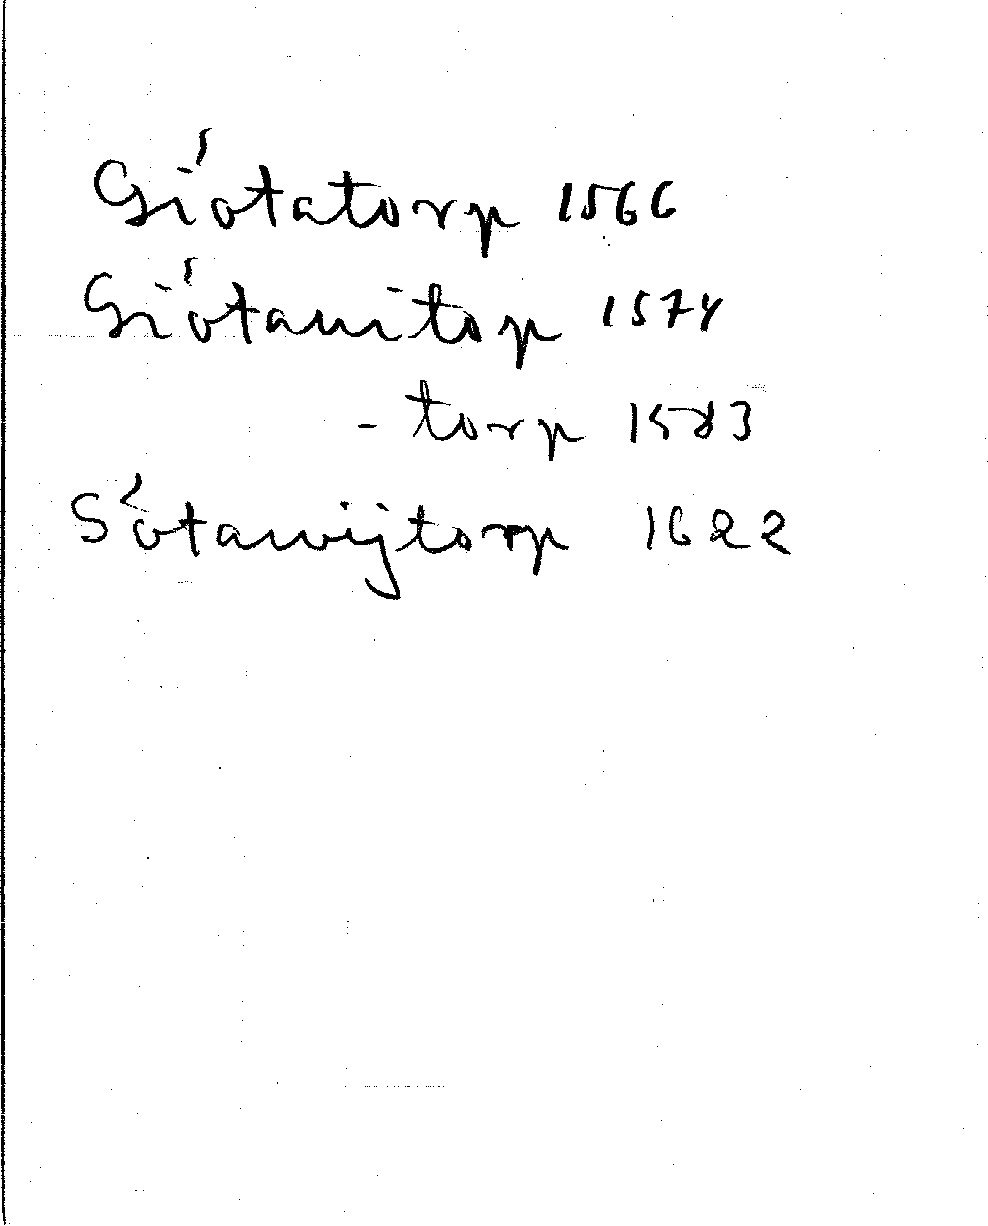 Giótatorp 1566
Giótauitop 1574
- torp 1583
Sótawijtorp 1622